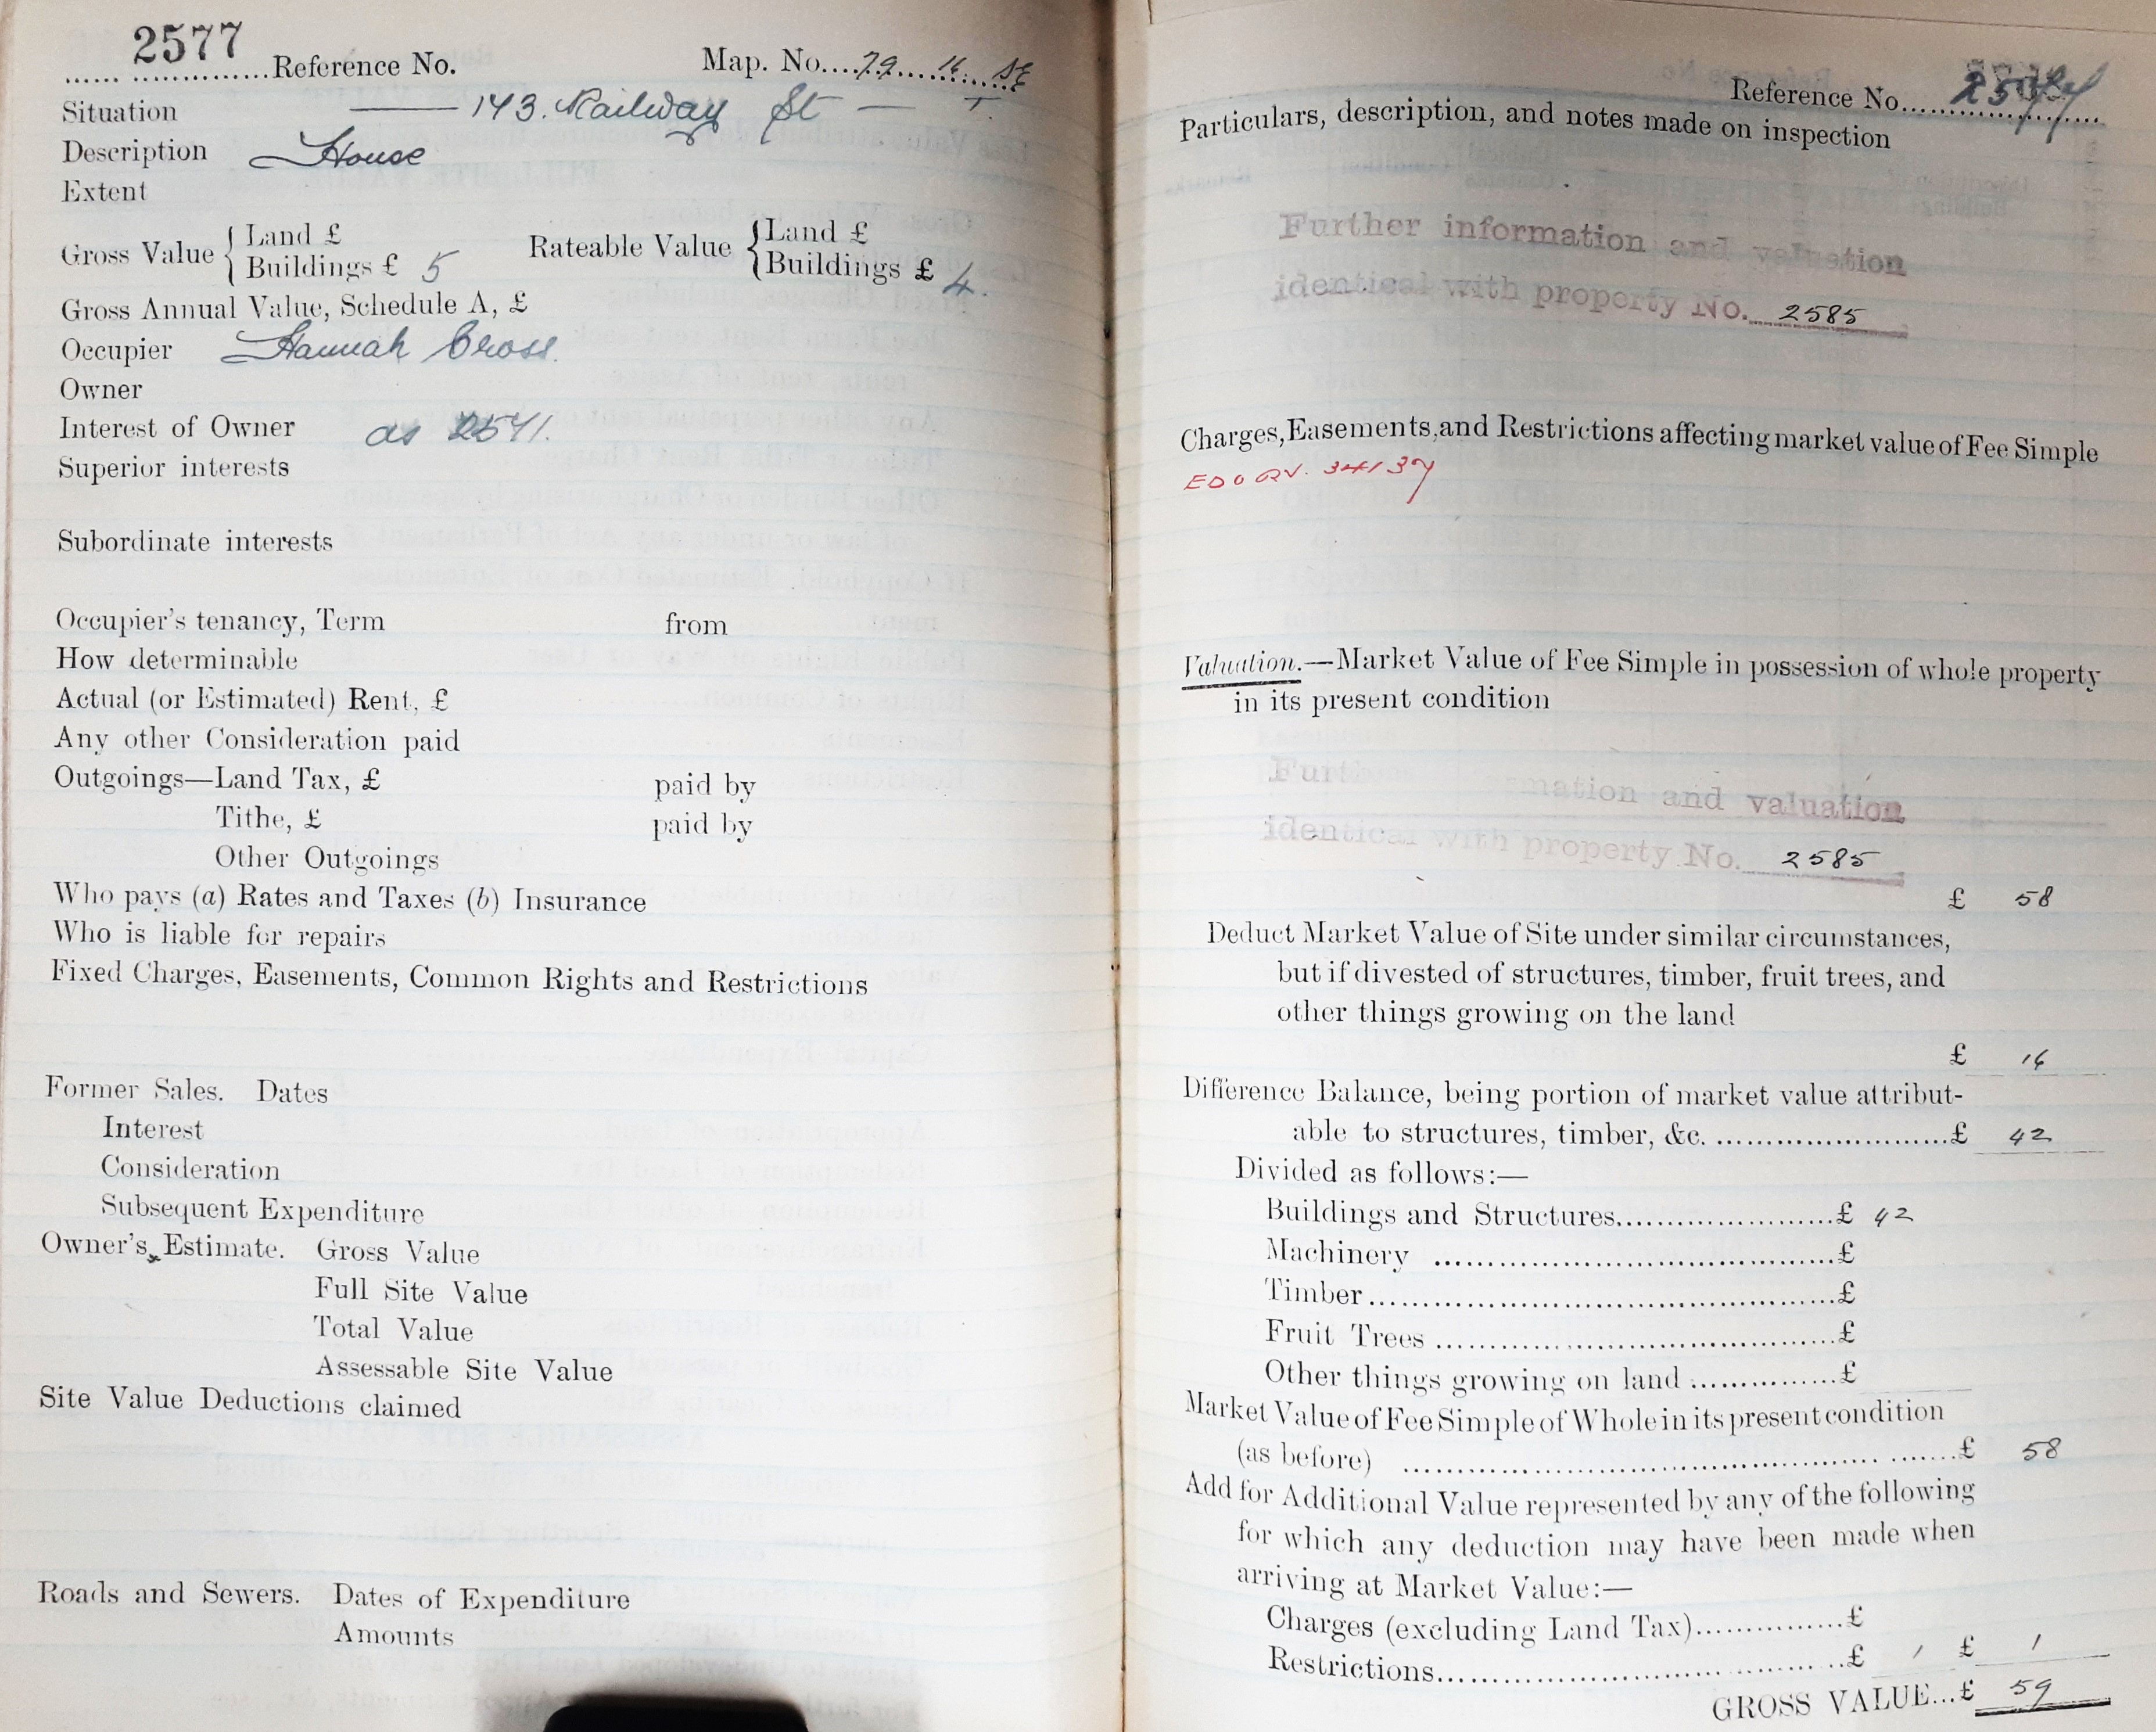 2577
Reference No. Map. No. 79. 16. SE
Situation — 143. Railway St — T.
Description House
Extent
Gross Value { Land £
Buildings £ 5
Rateable Value { Land £
Buildings £ 4.
Gross Annual Value, Schedule A, £
Occupier Hannah Cross.
Owner
Interest of Owner as 2541.
Superior interests
Subordinate interests
Occupier's tenancy, Term from
How determinable
Actual (or Estimated) Rent, £
Any other Consideration paid
Outgoings—Land Tax, £ paid by
Tithe, £ paid by
Other Outgoings
Who pays (a) Rates and Taxes (b) Insurance
Who is liable for repairs
Fixed Charges, Easements, Common Rights and Restrictions
Former Sales. Dates
Interest
Consideration
Subsequent Expenditure
Owner's Estimate. Gross Value
Full Site Value
Total Value
Assessable Site Value
Site Value Deductions claimed
Roads and Sewers. Dates of Expenditure
Amounts
Reference No.
Particulars, description, and notes made on inspection
Further information and valuation
identical with property No. 2585
Charges, Easements, and Restrictions affecting market value of Fee Simple
34137
Valuation.—Market Value of Fee Simple in possession of whole property
in its present condition
Further information and valuation
identical with property No. 2585
£ 58
Deduct Market Value of Site under similar circumstances,
but if divested of structures, timber, fruit trees, and
other things growing on the land
£ 16
Difference Balance, being portion of market value attribut-
able to structures, timber, &c. £ 42
Divided as follows:—
Buildings and Structures £ 42
Machinery £
Timber £
Fruit Trees £
Other things growing on land £
Market Value of Fee Simple of Whole in its present condition
(as before) £ 58
Add for Additional Value represented by any of the following
for which any deduction may have been made when
arriving at Market Value:—
Charges (excluding Land Tax) £
Restrictions £ 1 £ 1
GROSS VALUE...£ 59